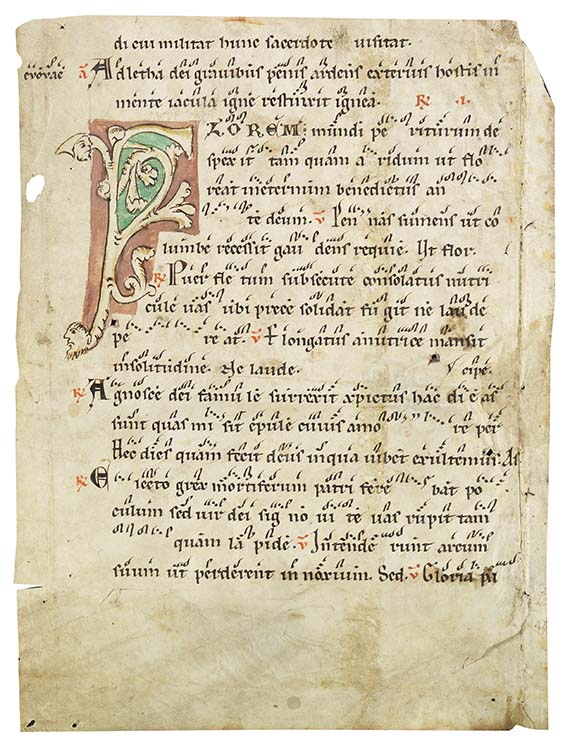 di cui militat hunc sacerdote visitat.
evovae a Ad letha dei gravibus penis ardens exterius hostis in
mente iacula igne restinxit ignea. R .I.
FLOREM mundi pe riturum de
spexit tam quam a ridum ut flo
reat ineternum benedictus an
te deum. V Pen nas sumens ut co
lumbe recessit gau dens requie. Ut flor.
R Puer fle tum subsecute consolatus nutri
cule vas ubi prece solidat fu git ne laude
pe re at. V Elongatus anutrice mansit
insolitudine. Ne laude. cipe.
R Agnosce dei famu le surrexit hac di e as
sunt quas mi sit epule cuius amo re per
Hec dies quam fecit deus inqua iubet exultemur. As
R Electo grex mortiferum patri fere bat po
culum sed vir dei sig no vi te vas rupit tam
quam la pide. V Intende runt arcum
suum ut perderent in noxium. Sed. V Gloria pa